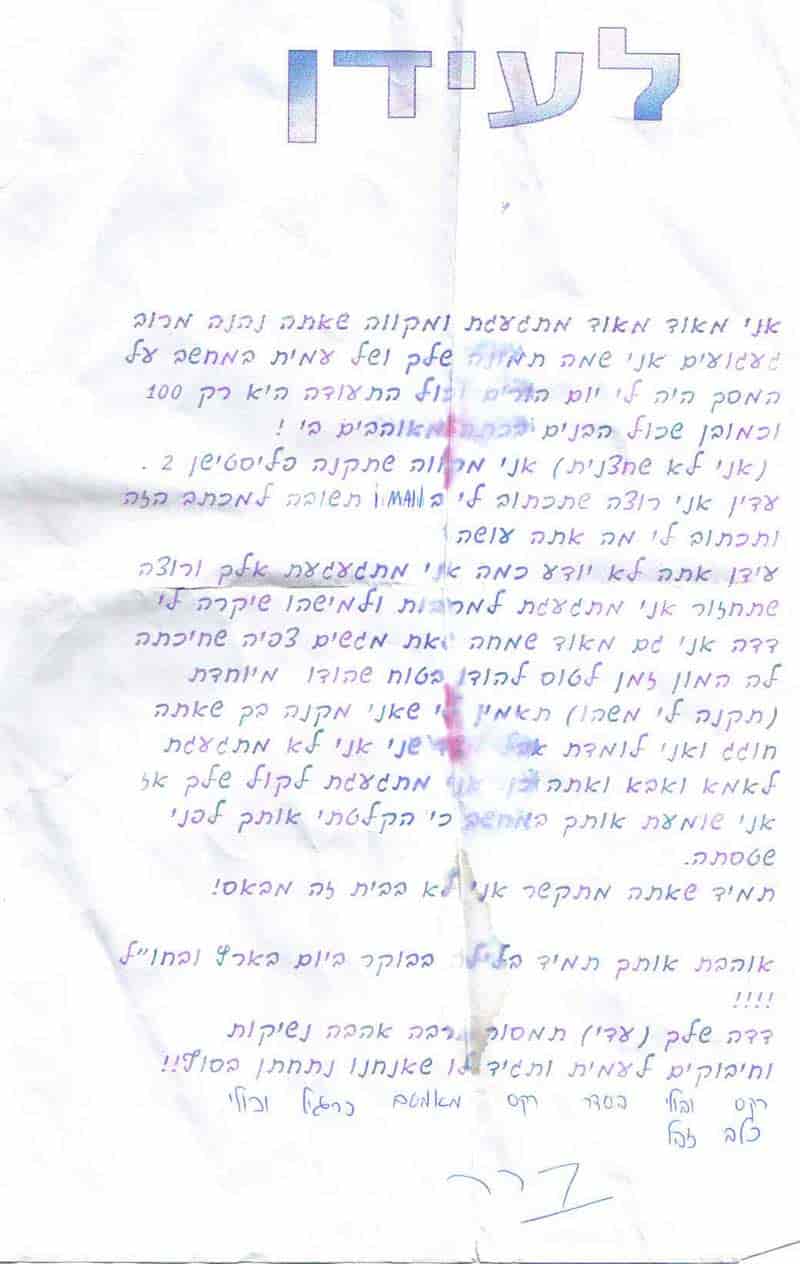 לעידן
אני מאוד מאוד מתגעגת ומקווה שאתה נהנה מרוב
געגועים אני שמה תמונה שלך ושל עמית במחשב על
המסך היה לי יום הורים וכול התעודה היא רק 100
וכמובן שכול הבנים בכתה מאוהבים בי !
(אני לא שחצנית) אני מקווה שתקנה פליסטישן 2 .
עדין אני רוצה שתכתוב לי בIMAIL תשובה למכתב הזה
ותכתוב לי מה אתה עושה
עידן אתה לא יודע כמה אני מתגעגעת אלך ורוצה
שתחזור אני מתגעגת למריבות ולמישהו שיקרה לי
דדה אני גם מאוד שמחה שאת מגשים צפיה שחיכתה
לה המון זמן לטוס להודו בטוח שהודו מיוחדת
(תקנה לי משהו) תאמין לי שאני מקנה בך שאתה
חוגג ואני לומדת אבל שני אני לא מתגעגת
לאמא ואבא ואתה כן אני מתגעגת לקול שלך אז
אני שומעת אותך במחשב כי הקלטתי אותך לפני
שטסתה.
תמיד שאתה מתקשר אני לא בבית זה מבאס!
אוהבת אותך תמיד בלילה בבוקר ביום בארץ ובחו"ל
!!!!
דדה שלך (עדי) תמסור הרבה אהבה נשיקות
וחיבוקים לעמית ותגיד לו שאנחנו נתחתן בסוף!!
רקס ובולי בסדר רקס מאמטב כרגיל ובולי
כלב זהל